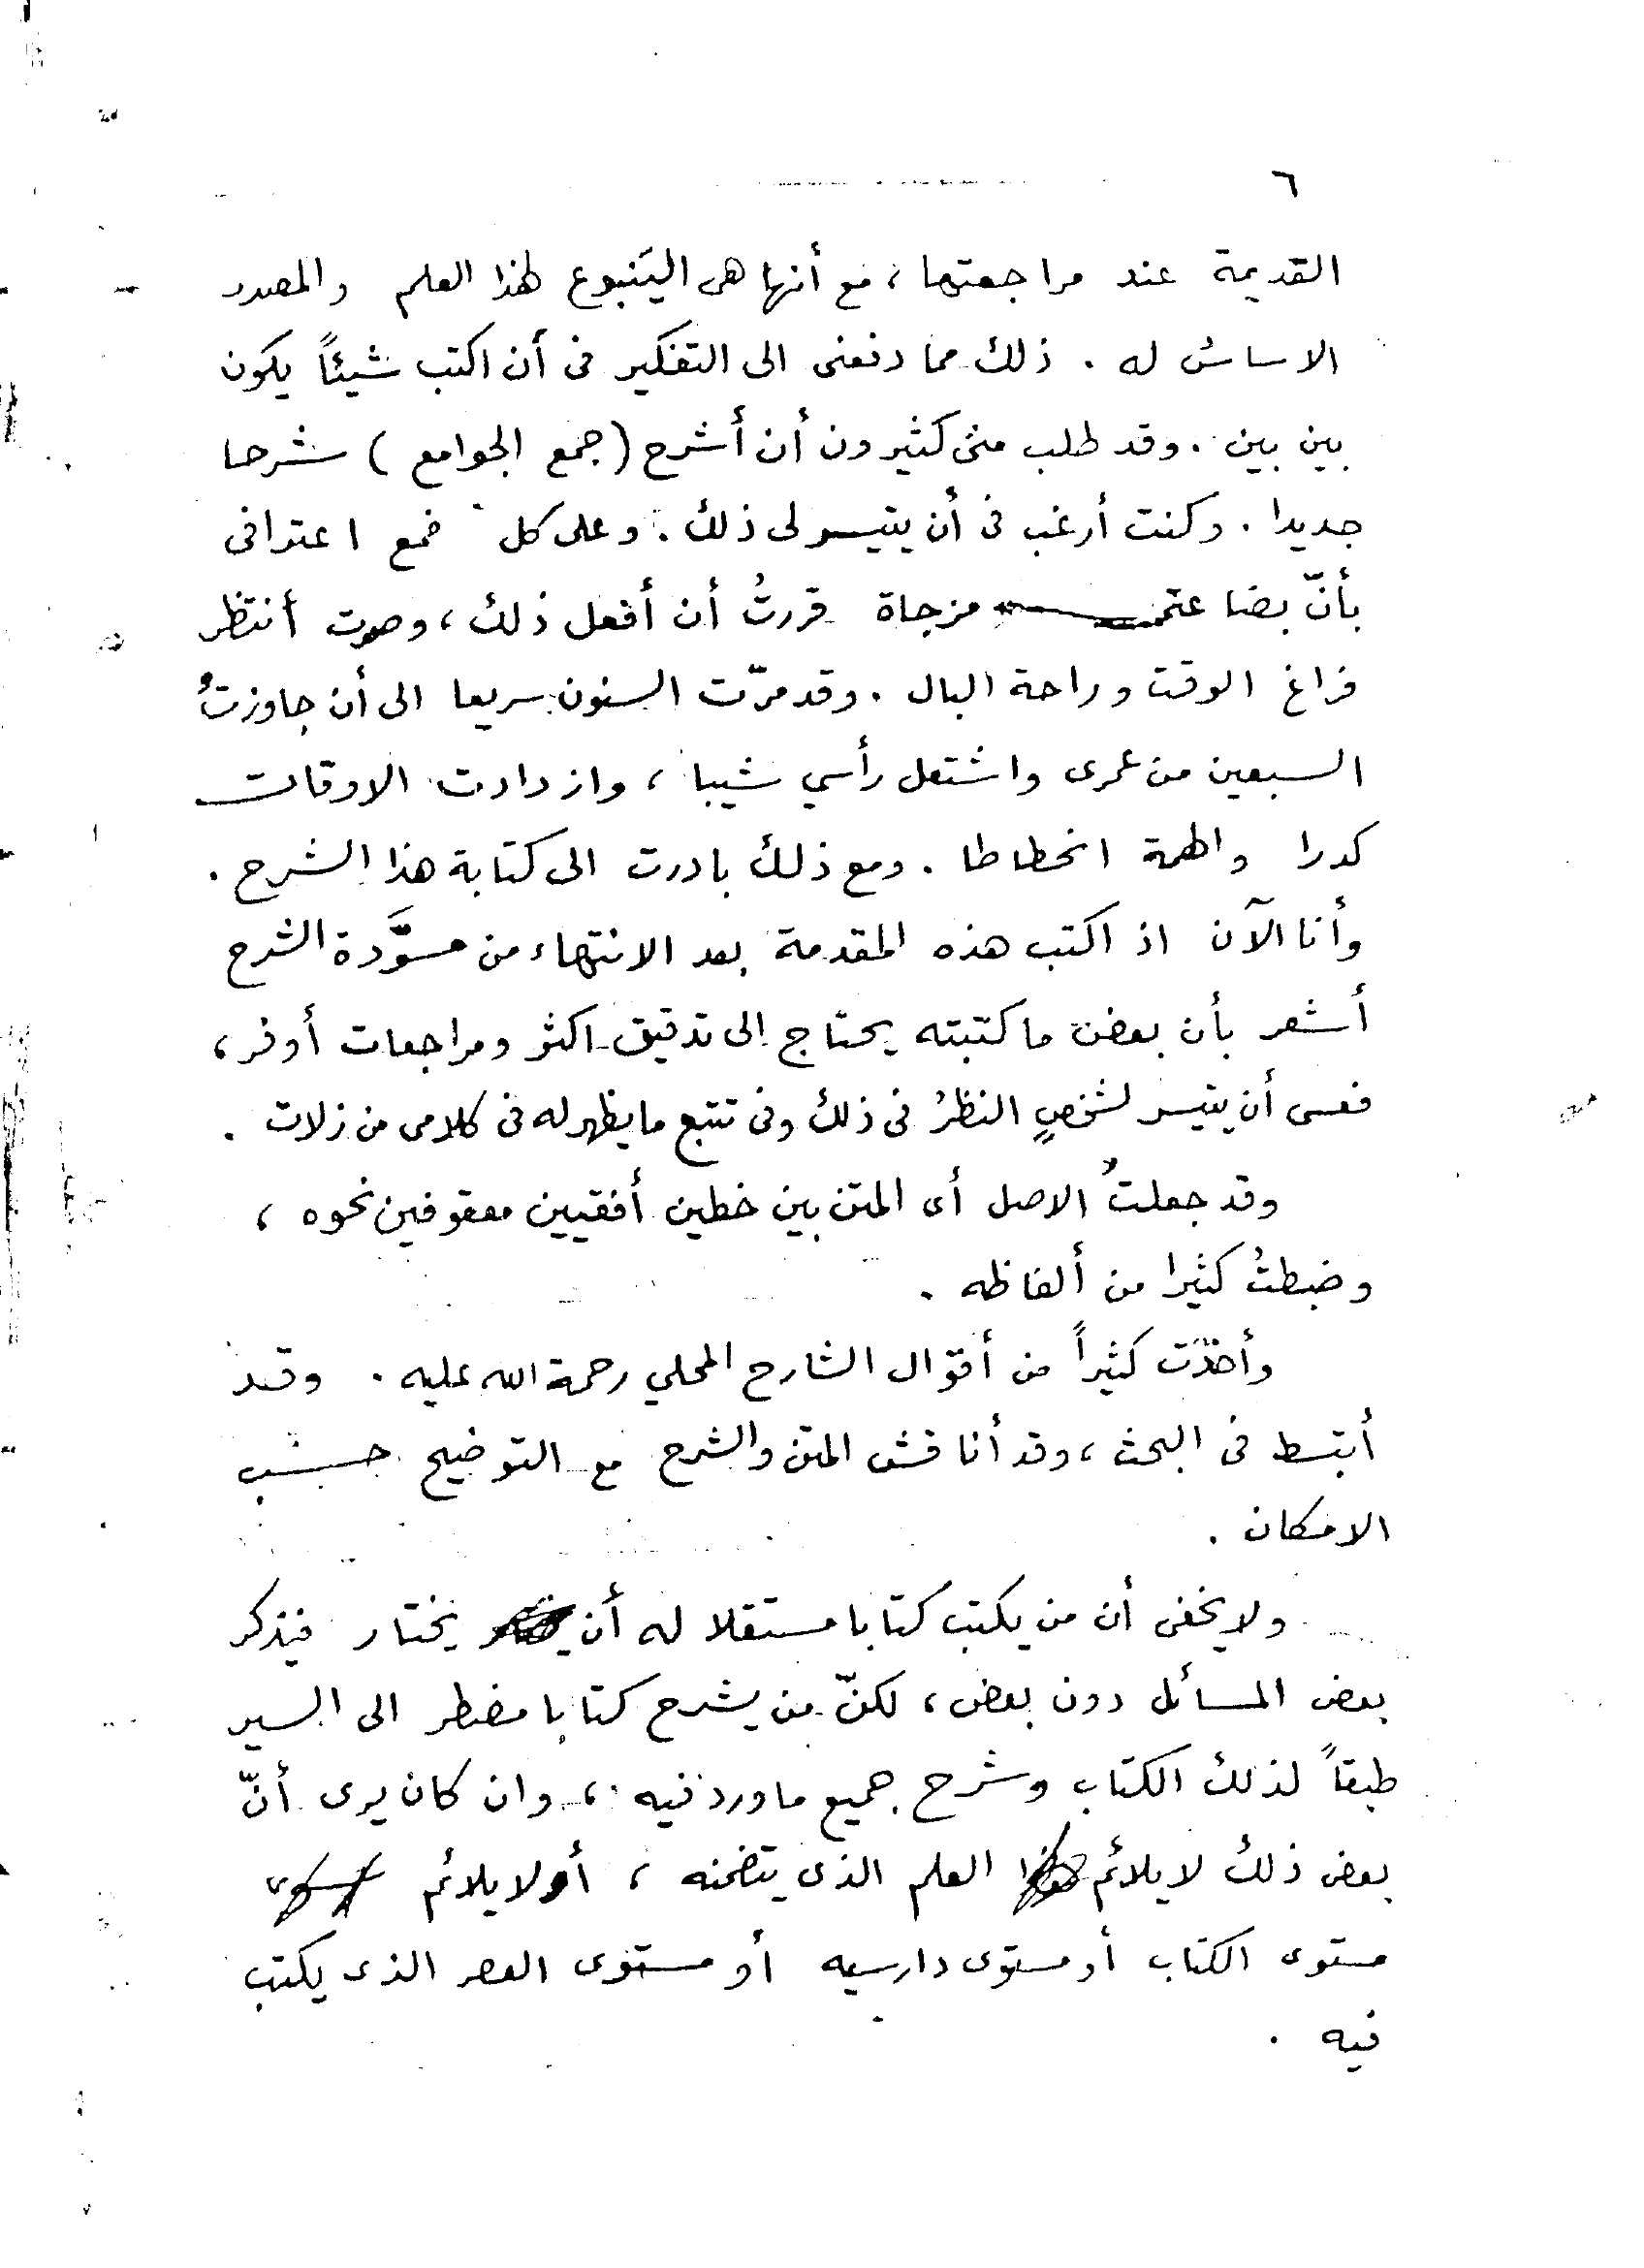 ٦
القديمة عند مراجعتها ، مع أنها هى اليَنبوع لهذا العلم والمصدر
الاساسُ له . ذلك مما دفعنى الى التفكير فى أن اكتب شيئاً يكون
بين بين . وقد طلب منى كثيرون أن أشرح (جمع الجوامع) شرحا
جديدا . وكنت أرغب فى أن يتيسر لى ذلك . وعلى كل فمع اعترافى
بأنّ بضاعتى مزجاة قررتُ أن أفعل ذلك ، وصرت أنتظر
فراغ الوقت وراحة البال . وقد مرّت السنون سريعا الى أن جاوزتُ
السبعين من عمرى واشتعل رأسي شيبا ، وازدادت الاوقات
كدرا والهمة انحطاطا . ومع ذلك بادرت الى كتابة هذا الشرح .
وأنا الآن اذ اكتب هذه المقدمة بعد الانتهاء من مسوَّدة الشرح
أشعر بأن بعض ما كتبته يحتاج الى تدقيق اكثر ومراجعات أوفر ،
فعسى أن يتيسر لشخصٍ النظرُ فى ذلك وفى تتبع ما يظهر له فى كلامى من زلات .
وقد جعلتُ الاصل أى المتن بين خطين أفقيين معقوفين نحوه ،
وضبطتُ كثيرا من ألفاظه .
وأخذت كثيراً من أقوال الشارح المحلي رحمة الله عليه . وقد
أبتسط فى البحث ، وقد أناقش المتن والشرح مع التوضيح حسب
الامكان .
ولا يخفى أن من يكتب كتابا مستقلا له أن يختار فيذكر
بعض المسائل دون بعض ، لكنّ من يشرح كتابا مضطر الى السير
طبقاً لذلك الكتاب وشرح جميع ما ورد فيه ، وان كان يرى أنّ
بعض ذلك لا يلائم العلم الذى يتضمنه ، أو لا يلائم
مستوى الكتاب أو مستوى دارسيه أو مستوى العصر الذى يكتب
فيه .